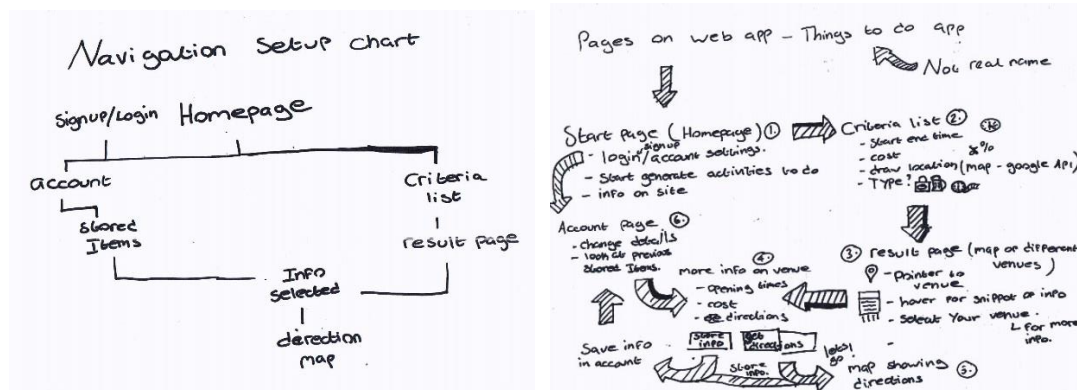 Navigation Setup chart
Signup/Login Homepage
account
Criteria
list
Stored
Items
result page
Info
Selected
direction
map
Pages on web app - Things to do app
Not real name
Start page (Homepage) 1.
- login/signup account settings.
- Start generate activities to do
- info on site
Criteria list 2.
- Start end time
- cost
- draw location (map - google API)
- TYPE?
Account page 6.
- change details
- look at previous
Stored Items.
4.
more info on venue
- opening times
- cost
- directions
3. result page (map of different
venues)
- Pointer to
venue
- hover for snippet of info
- Select Your venue.
for more
info.
Store
info
Get
directions
Save info
in account
Store
info.
lets
go
map showing 5.
directions